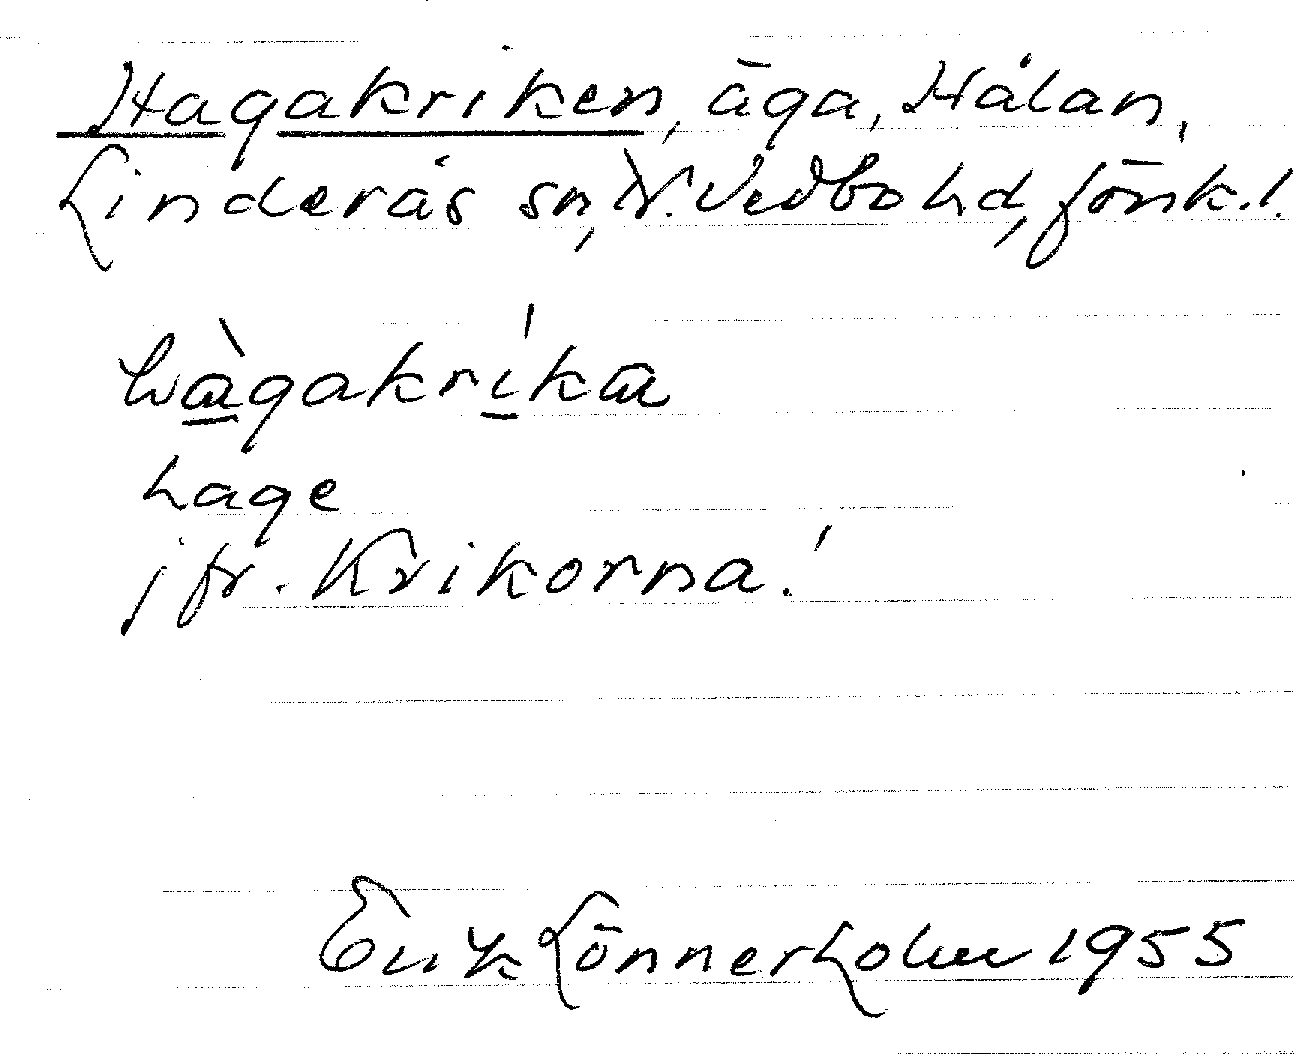 Hagakriken, äga, Hålan,
Linderås sn, N. Vedbo hd, Jönk. l.
hàgakríka
hage
jfr. Krikorna!
Erik Lönnerholm 1955